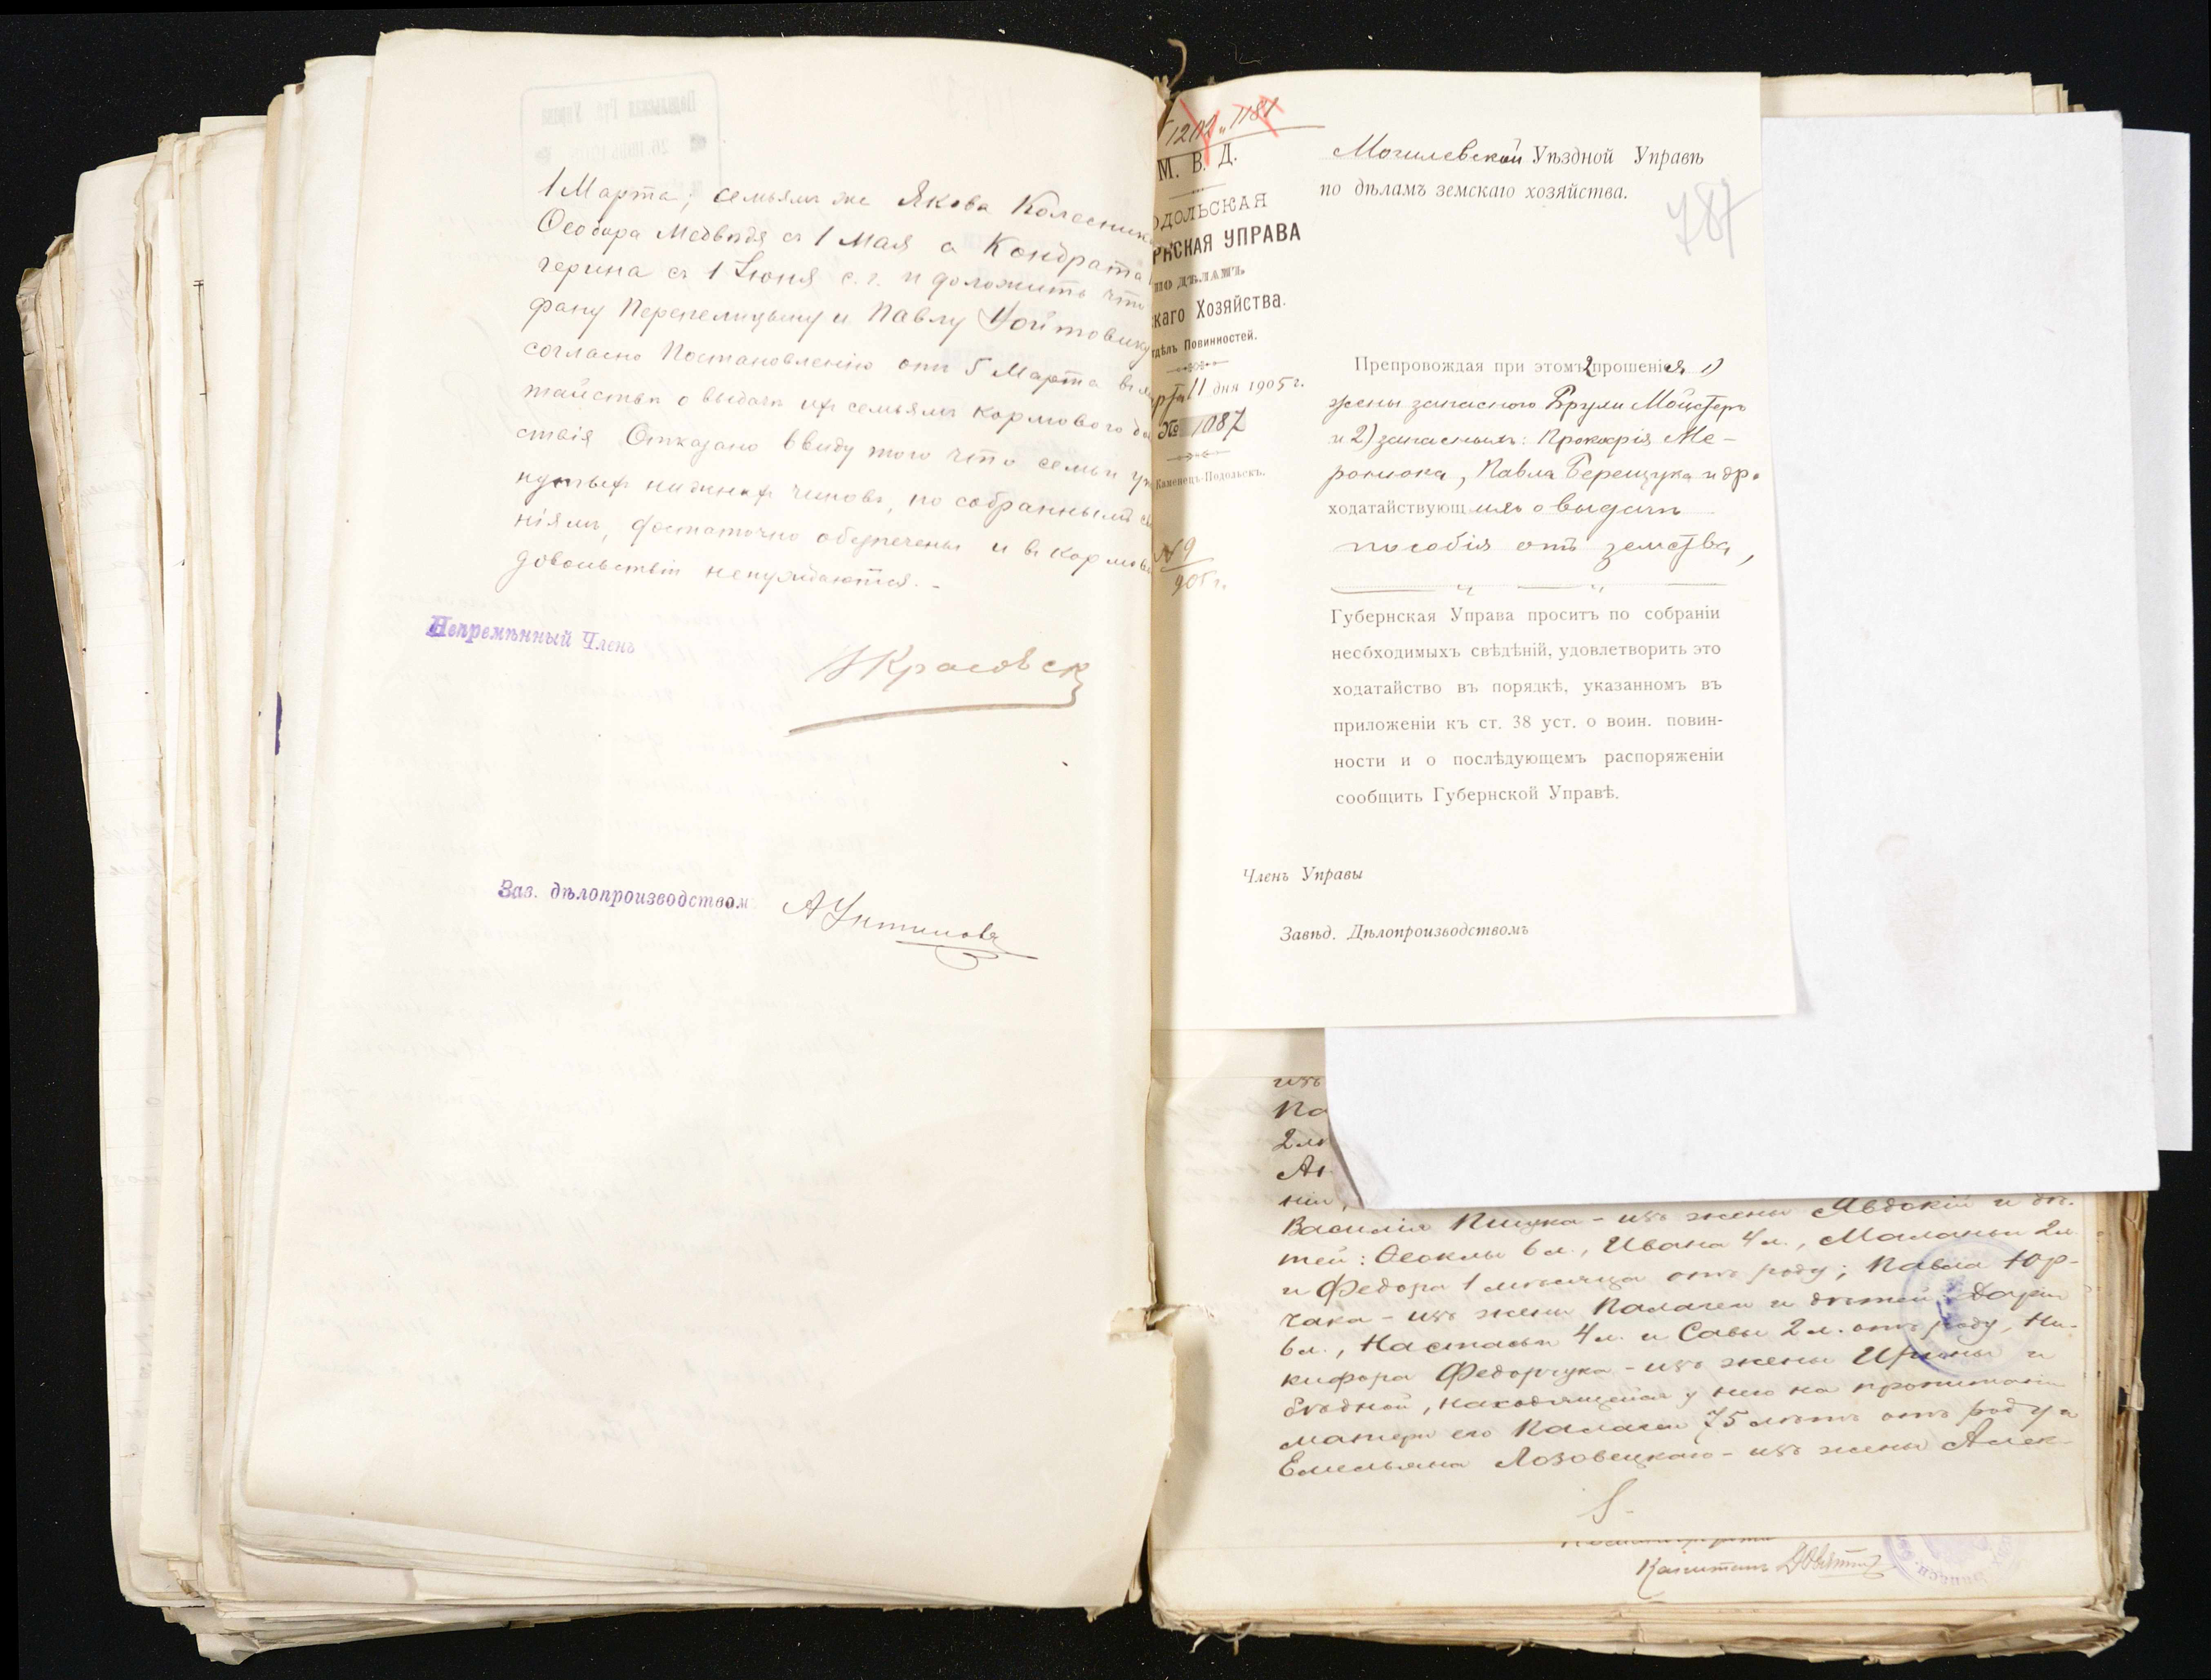 1 Марта; семьямъ же Якова Колесник
Ѳеодора Медвѣдя съ 1 Мая а Кондрата
черина съ 1 Іюня с. г. и доложить что
фану Перепелицыну и Павлу Войтовику
согласно Постановленію отъ 5 Марта въ
тайствѣ о выдачѣ их семьямъ кормового до
ствія Отказано ввиду того что семьи уп
нутых нижних чиновъ, по собраннымъ св
ніямъ, достаточно обезпечены и въ кормов
довольствіи ненуждаются. -
Непремѣнный Членъ
Зав. дѣлопроизводством
1202 и 1181
М. В. Д.
ОДОЛЬСКАЯ
РНСКАЯ УПРАВА
ПО ДѢЛАМЪ
каго Хозяйства.
тдѣлъ Повинностей.
рта 11 дня 1905 г.
№ 1087
Каменецъ-Подольскъ.
№ 9
905 г.
Могилевской Уѣздной Управѣ
по дѣламъ земскаго хозяйства.
787
Препровождая при этомъ 2 прошенія 1)
жены запасного Брули Мойстеръ
и 2) запасныхъ: Прокофія Ме-
ронюка, Павла Берещука и др.
ходатайствующихъ о выдачѣ
пособія отъ земства,
Губернская Управа проситъ по собраніи
необходимыхъ свѣдѣній, удовлетворить это
ходатайство въ порядкѣ, указанномъ въ
приложеніи къ ст. 38 уст. о воин. повин-
ности и о послѣдующемъ распоряженіи
сообщить Губернской Управѣ.
Членъ Управы
Завѣд. Дѣлопроизводствомъ
изъ
Па
2 лѣ
Ан
ніи,
Василія Пицука - изъ жены Явдокіи и дѣ-
тей: Ѳеоклы 6 л., Ивана 4 л., Маланьи 2 л.
и Федора 1 мѣсяца отъ роду; Павла Юр-
чака - изъ жены Палагеи и дѣтей: Дарьи
6 л., Настасьи 4 л. и Савы 2 л. отъ роду, Ни-
кифора Федорчука - изъ жены Ирины и
бѣдной, находящейся у него на пропитаніи
матери его Палагеи 75 лѣтъ отъ роду и
Емельяна Лозовецкаго - изъ жены Алек-
Капитанъ